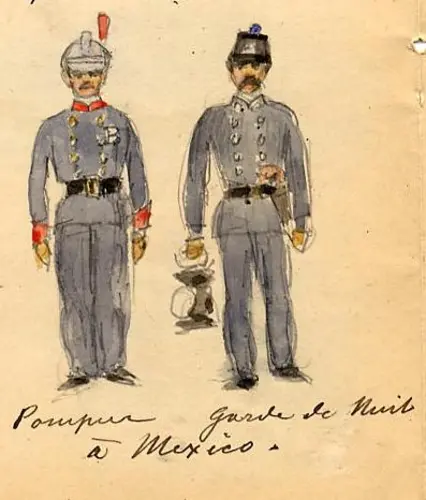 Pompier Garde de Nuit
à Mexico.